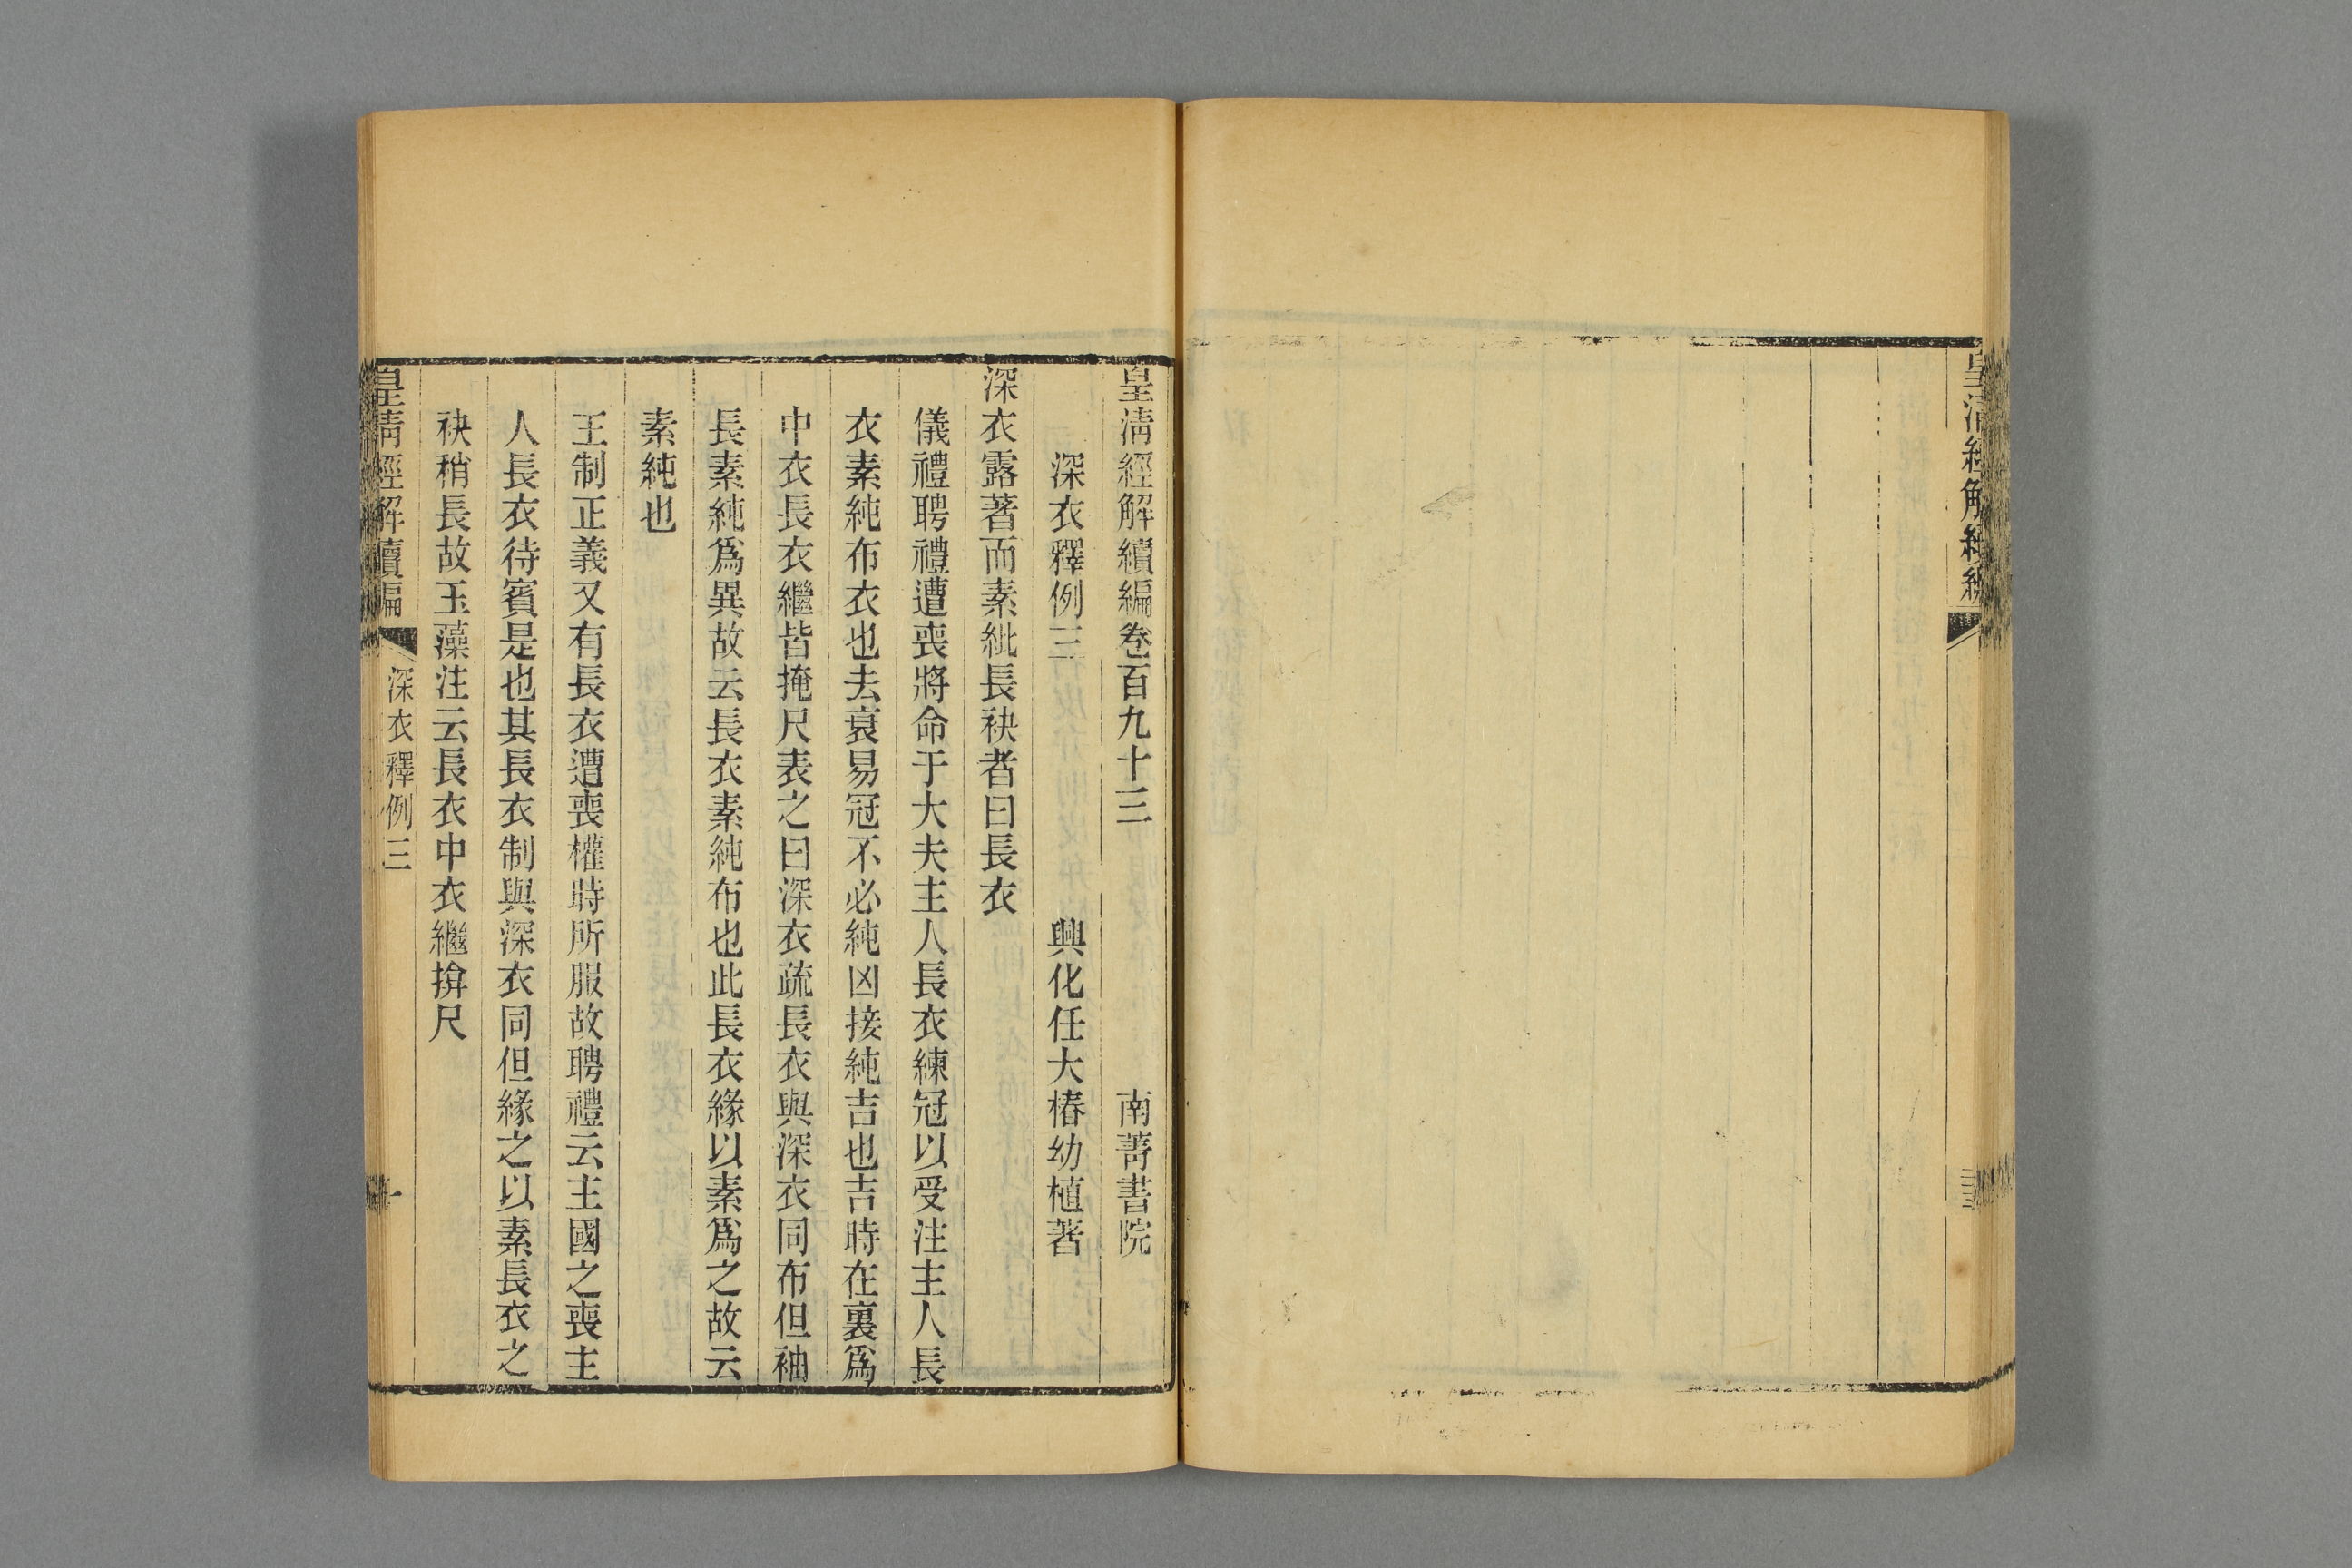 皇清經解續編
皇清經解續編卷百九十三 南菁書院
深衣釋例三 興化任大椿幼植著
深衣露著而素紕長袂者曰長衣
儀禮聘禮遭喪將命于大夫主人長衣練冠以受注主人長
衣素純布衣也去衰易冠不必純凶接純吉也吉時在裏爲
中衣長衣繼皆掩尺表之曰深衣疏長衣與深衣同布但袖
長素純爲異故云長衣素純布也此長衣緣以素爲之故云
素純也
王制正義又有長衣遭喪權時所服故聘禮云主國之喪主
人長衣待賓是也其長衣制與深衣同但緣之以素長衣之
袂稍長故玉藻注云長衣中衣繼揜尺
皇清經解續編 深衣釋例三 一